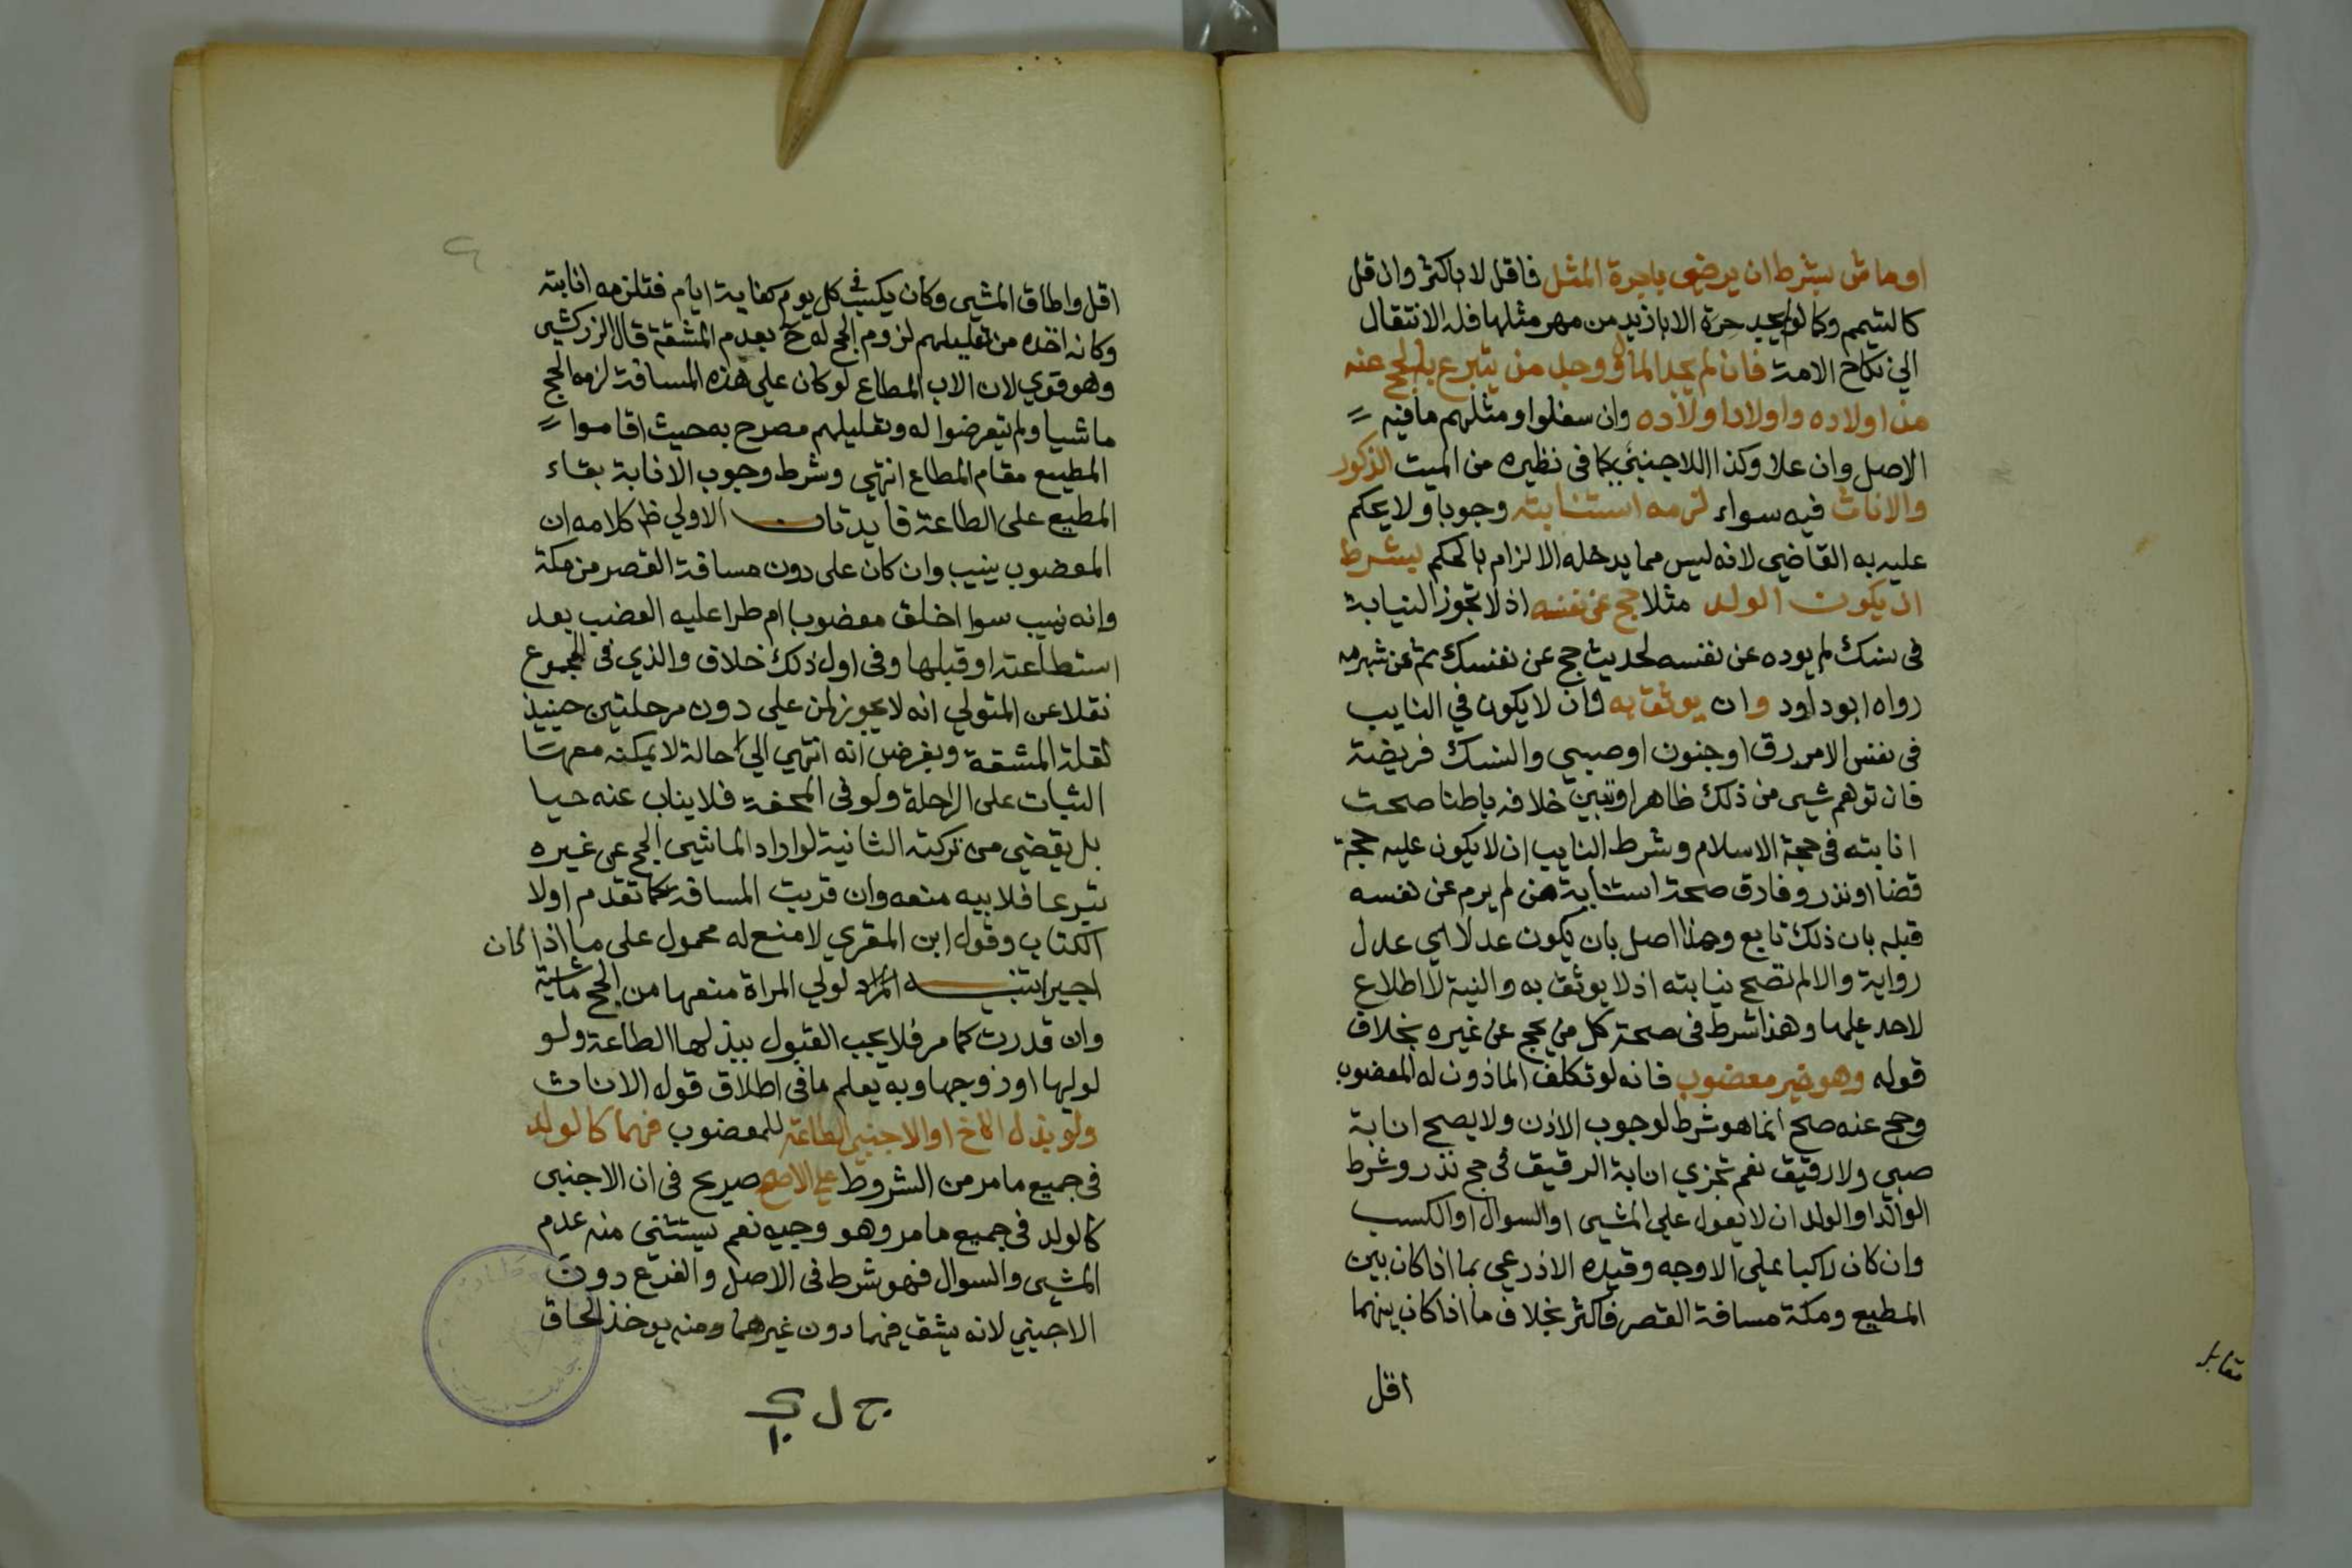 او ماش بشرط ان يرضى باجرة المثل فاقل لا باكثر وان قل
كالتيمم وكما لو لم يجد حرة الا بازيد من مهر مثلها فله الانتقال
الي نكاح الامة فان لم يجد المال ووجد من يتبرع بالحج عنه
من اولاده واولاد اولاده وان سفلوا ومثلهم مافيه
الاصل وان علا وكذا الاجنبي كما في نظيره من الميت الذكور
والاناث فيه سواء لزمه استنابته وجوبا ولا يحكم
عليه به القاضي لانه ليس مما يدخله الالزام بالحكم بشرط
ان يكون الولد مثلا حج عن نفسه اذ لا تجوز النيابة
في نسك لم يوده عن نفسه لحديث حج عن نفسك ثم عن شبرمه
رواه ابو داود وان يوثق به وان لا يكون في النايب
في نفس الامر رق او جنون او صبي والنسك فريضة
فان توهم شي من ذلك ظاهرا وتبين خلافه باطنا صحت
انابته في حجة الاسلام وشرط النايب ان لا يكون عليه حجة
قضا او نذر وفارق صحة استنابة من لم يرم عن نفسه
قبله بان ذلك تابع وهذا اصل بان يكون عدلا اي عدل
رواية والا لم تصح نيابته اذ لا يوثق به والنية لا اطلاع
لاحد عليها وهذا شرط في صحة كل من يحج عن غيره بخلاف
قوله وهو غير معضوب فانه لو تكلف الماذون له المعضوب
وحج عنه صح انما هو شرط لوجوب الاذن ولا يصح انابة
صبي ولا رقيق نعم تجزي انابة الرقيق في حج نذر وشرط
الوالد او الولد ان لا يعول علي المشي او السوال او الكسب
وان كان راكبا علي الاوجه وقيده الاذرعي بما اذا كان بين
المطيع ومكة مسافة القصر فاكثر بخلاف ما اذا كان بينهما
اقل
مقابله
اقل واطاق المشي وكان يكسب في كل يوم كفاية ايام فتلزمه انابته
وكانه اخذه من تعليلهم لزوم الحج له ح بعدم المشقة قال الزركشي
وهو قوي لان الاب المطاع لو كان علي هذه المسافة لزمه الحج
ماشيا ولم يتعرضوا له وتعليلهم مصرح به حيث اقاموا
المطيع مقام المطاع انتهي وشرط وجوب الانابة بقاء
المطيع على الطاعة فايدتان الاولي ظ كلامه ان
المعضوب ينيب وان كان على دون مسافة القصر من مكة
وانه نيب سوا اخلق معضوبا ام طرا عليه العضب بعد
استطاعته او قبلها وفي اول ذلك خلاف والذي في المجموع
نقلا عن المتولي انه لا يجوز لمن علي دون مرحلتين حينيذ
لقلة المشقة وبفرض انه انتهي الي حالة لا يمكنه معها
الثبات على الراحلة ولو في المحفة فلا يناب عنه حيا
بل يقضي من تركته الثانية لو اراد الماشي الحج عن غيره
تبرعا فلابيه منعه وان قربت المسافة كما تقدم اولا
الكتاب وقول ابن المقري لا منع له محمول على ما اذا كان
اجيرا تنبيه المراد لولي المراة منعها من الحج ماشية
وان قدرت كما مر فلا يجب القبول ببذلها الطاعة ولو
لوليها او زوجها وبه يعلم ما في اطلاق قوله الاناث
ولو بذل الاخ او الاجنبي الطاعة للمعضوب فهما كالولد
في جميع ما مر من الشروط علي الاصح صريح في ان الاجنبي
كالولد في جميع ما مر وهو وجيه نعم يستثني منه عدم
المشي والسوال فهو شرط في الاصل والفرع دون
الاجنبي لانه يشق فيهما دون غيرهما ومنه يوخذ الحاق